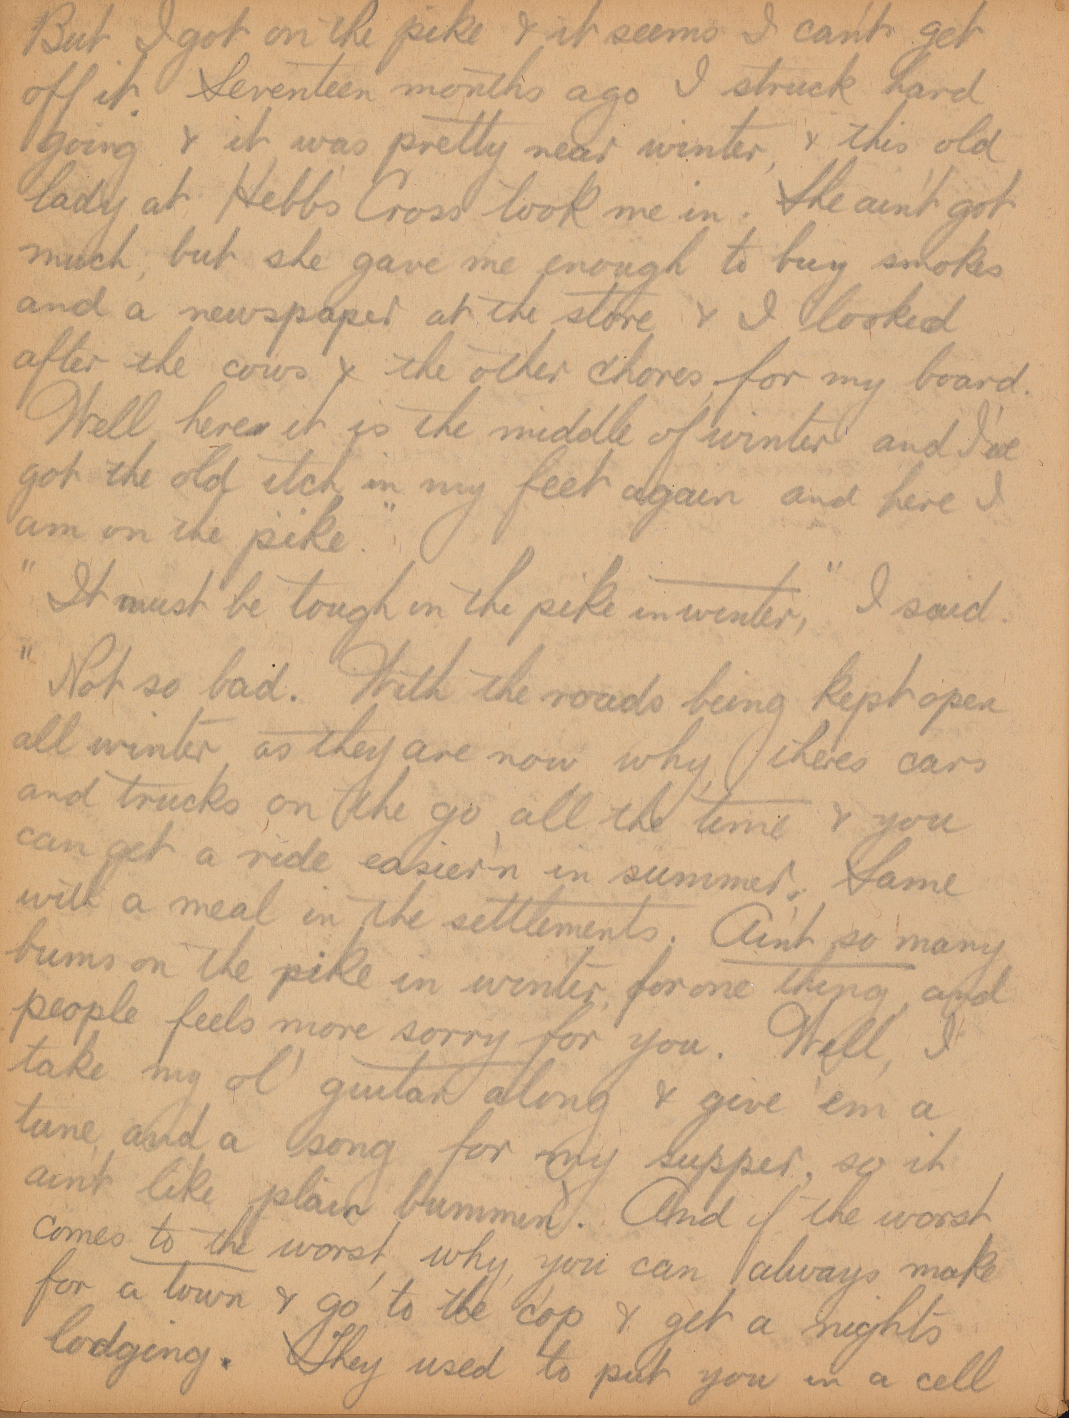 But I got on the pike & it seems I can't get
off it. Seventeen months ago I struck hard
going & it was pretty near winter, & this old
lady at Hebbs Cross took me in. She ain't got
much, but she gave me enough to buy smokes
and a newspaper at the store & I looked
after the cows & the other chores for my board.
Well here it is the middle of winter and I've
got the old itch in my feet again and here I
am on the pike."
"It must be tough on the pike in winter," I said.
"Not so bad. With the roads being kept open
all winter as they are now why, there's cars
and trucks on the go all the time & you
can get a ride easier'n in summer. Same
with a meal in the settlements. Ain't so many
bums on the pike in winter, for one thing, and
people feels more sorry for you. Well, I
take my ol' guitar along & give 'em a
tune and a song for my supper, so it
ain't like plain bummin'. And if the worst
comes to the worst, why, you can always make
for a town & go to the cop & get a nights
lodging. They used to put you in a cell